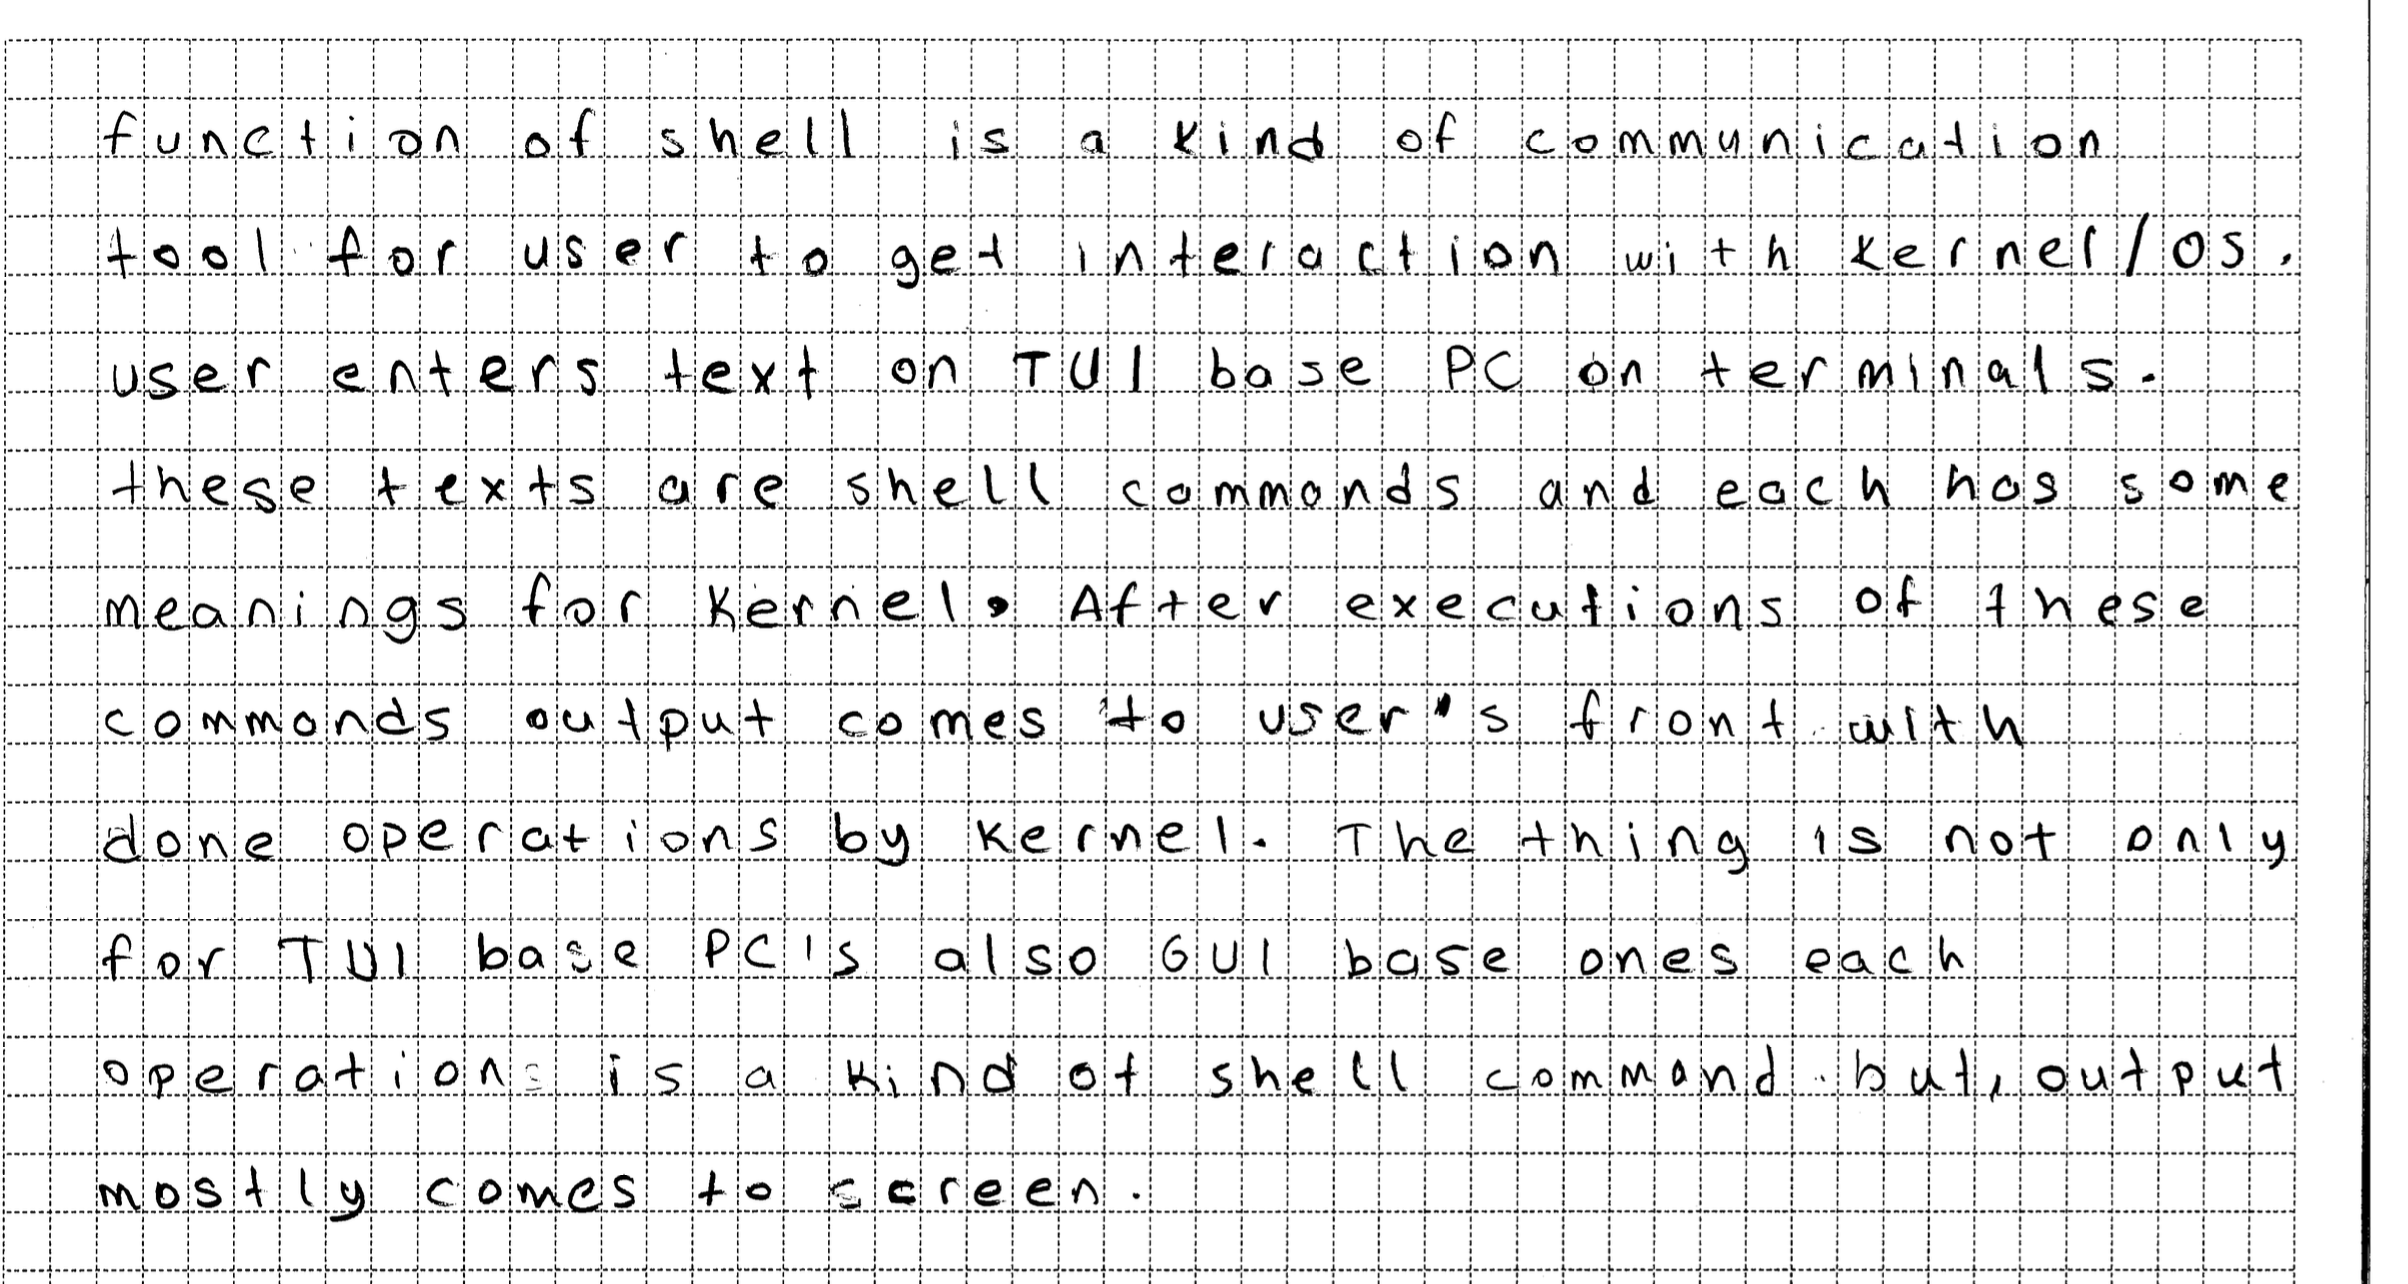 function of shell is a kind of communication
tool for user to get interaction with kernel/os.
user enters text on TUI base PC on terminals.
these texts are shell commands and each has some
meanings for kernel. After executions of these
commands output comes to user's front with
done operations by kernel. The thing is not only
for TUI base PC's also GUI base ones each
operations is a kind of shell command. but, output
mostly comes to screen.